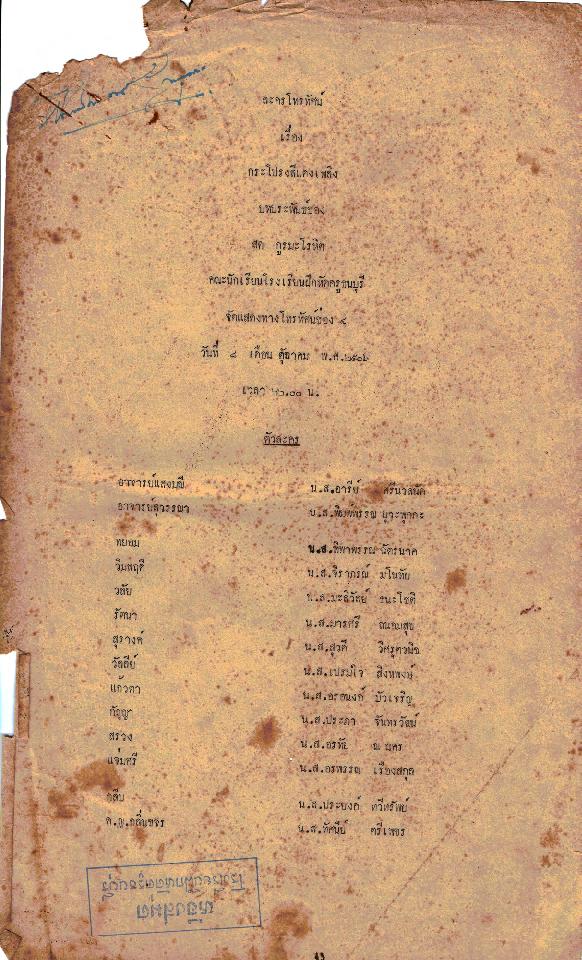 ละครโทรทัศน์
เรื่อง
กระโปรงสีแดงเพลิง
บทประพันธ์ของ
สด กูรมะโรหิต
คณะนักเรียนโรงเรียนฝึกหัดครูธนบุรี
จัดแสดงทางโทรทัศน์ช่อง ๔
วันที่ ๘ เดือน ตุลาคม พ.ศ.
เวลา น.
ตัวละคร
อาจารย์แสงมณี น.ส.อารีย์ ศรีนวลนัด
อาจารย์สุวรรณา น.ส.พิมพ์พรรณ
ทยอม น.ส.ทิพาพรรณ ฉัตรนาค
วิมพฤดี น.ส.จิราภรณ์ มโนทัย
วลัย น.ส.มะลิวัลย์ ธนะโชติ
รัตนา น.ส.มารศรี ถนอมสุข
สุรางค์ น.ส.สุวดี
วัลลีย์ น.ส.เปรมใจ สิงหพงษ์
แก้วตา น.ส.อรอนงค์ บัวเจริญ
กัญญา น.ส.ประภา จันทรวัฒน์
สรวง น.ส.อรทัย ณ นคร
แจ่มศรี น.ส.อรพรรณ เรืองสกุล
กลีบ น.ส.ประยงค์ ทวีทรัพย์
ด.ญ.กลิ่นขจร น.ส.ทัศนีย์ ตรีเพชร
ห้องสมุด
โรงเรียนฝึกหัดครูธนบุรี